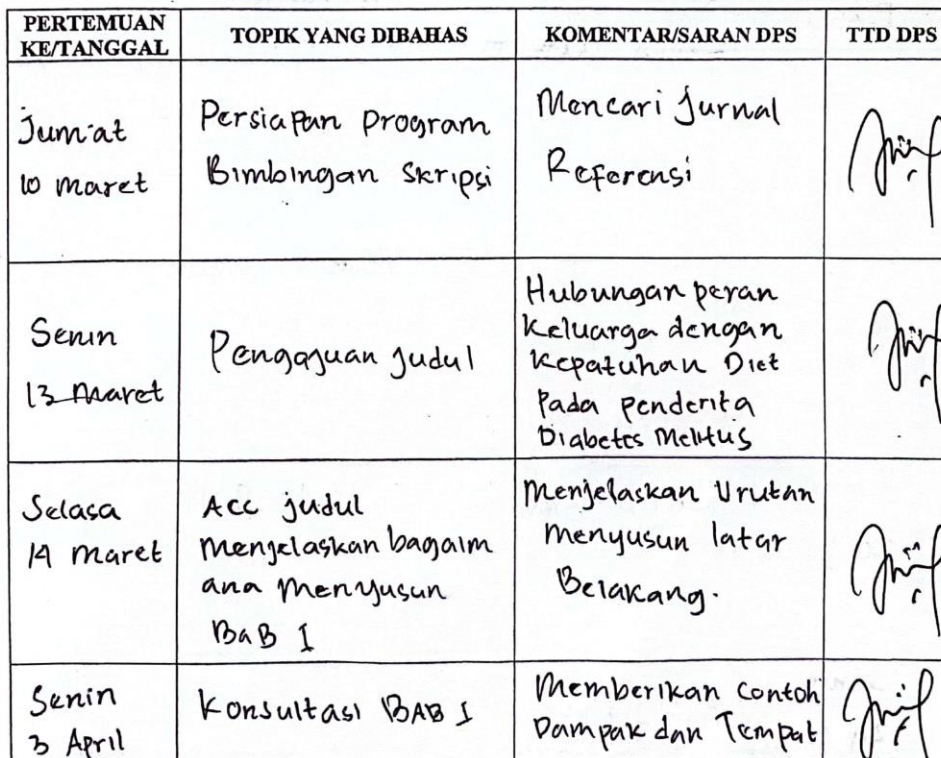 PERTEMUAN
KE/TANGGAL
TOPIK YANG DIBAHAS
KOMENTAR/SARAN DPS
TTD DPS
Jum'at
10 maret
Persiapan program
Bimbingan Skripsi
Mencari Jurnal
Referensi
Senin
13 Maret
Pengajuan judul
Hubungan peran
Keluarga dengan
Kepatuhan Diet
Pada penderita
Diabetes Melitus
Selasa
14 maret
Acc judul
menjelaskan bagaim
ana menyusun
BaB I
Menjelaskan Urutan
menyusun latar
Belakang.
Senin
3 April
Konsultasi BAB I
Memberikan contoh
Dampak dan Tempat